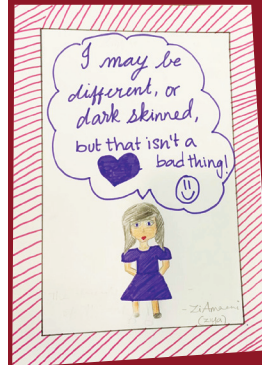 I may be
different, or
dark skinned,
but that isn't a
bad thing!